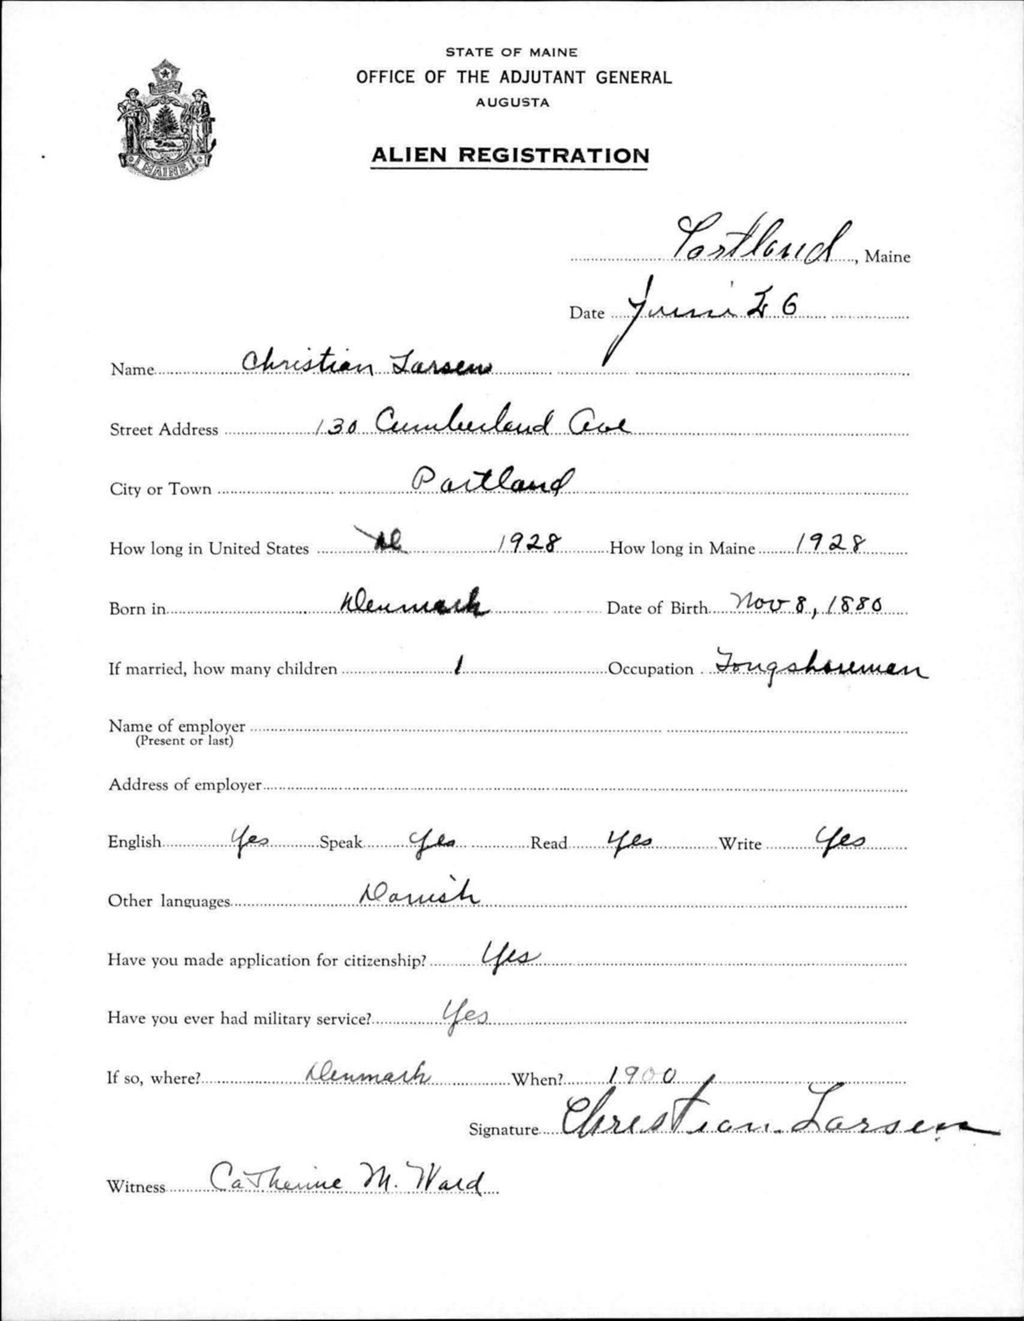 STATE OF MAINE
OFFICE OF THE ADJUTANT GENERAL
AUGUSTA
ALIEN REGISTRATION
MAINE
Portland, Maine
Date June 26
Name Christian Larsen
Street Address 130 Cumberland Ave
City or Town Portland
How long in United States 1928 How long in Maine 1928
Born in Denmark Date of Birth Nov 8, 1880
If married, how many children 1 Occupation Longshoreman
Name of employer
(Present or last)
Address of employer
English Yes Speak Yes Read Yes Write Yes
Other languages Danish
Have you made application for citizenship? Yes
Have you ever had military service? Yes
If so, where? Denmark When? 1900
Signature Christian Larsen
Witness Catherine M. Ward